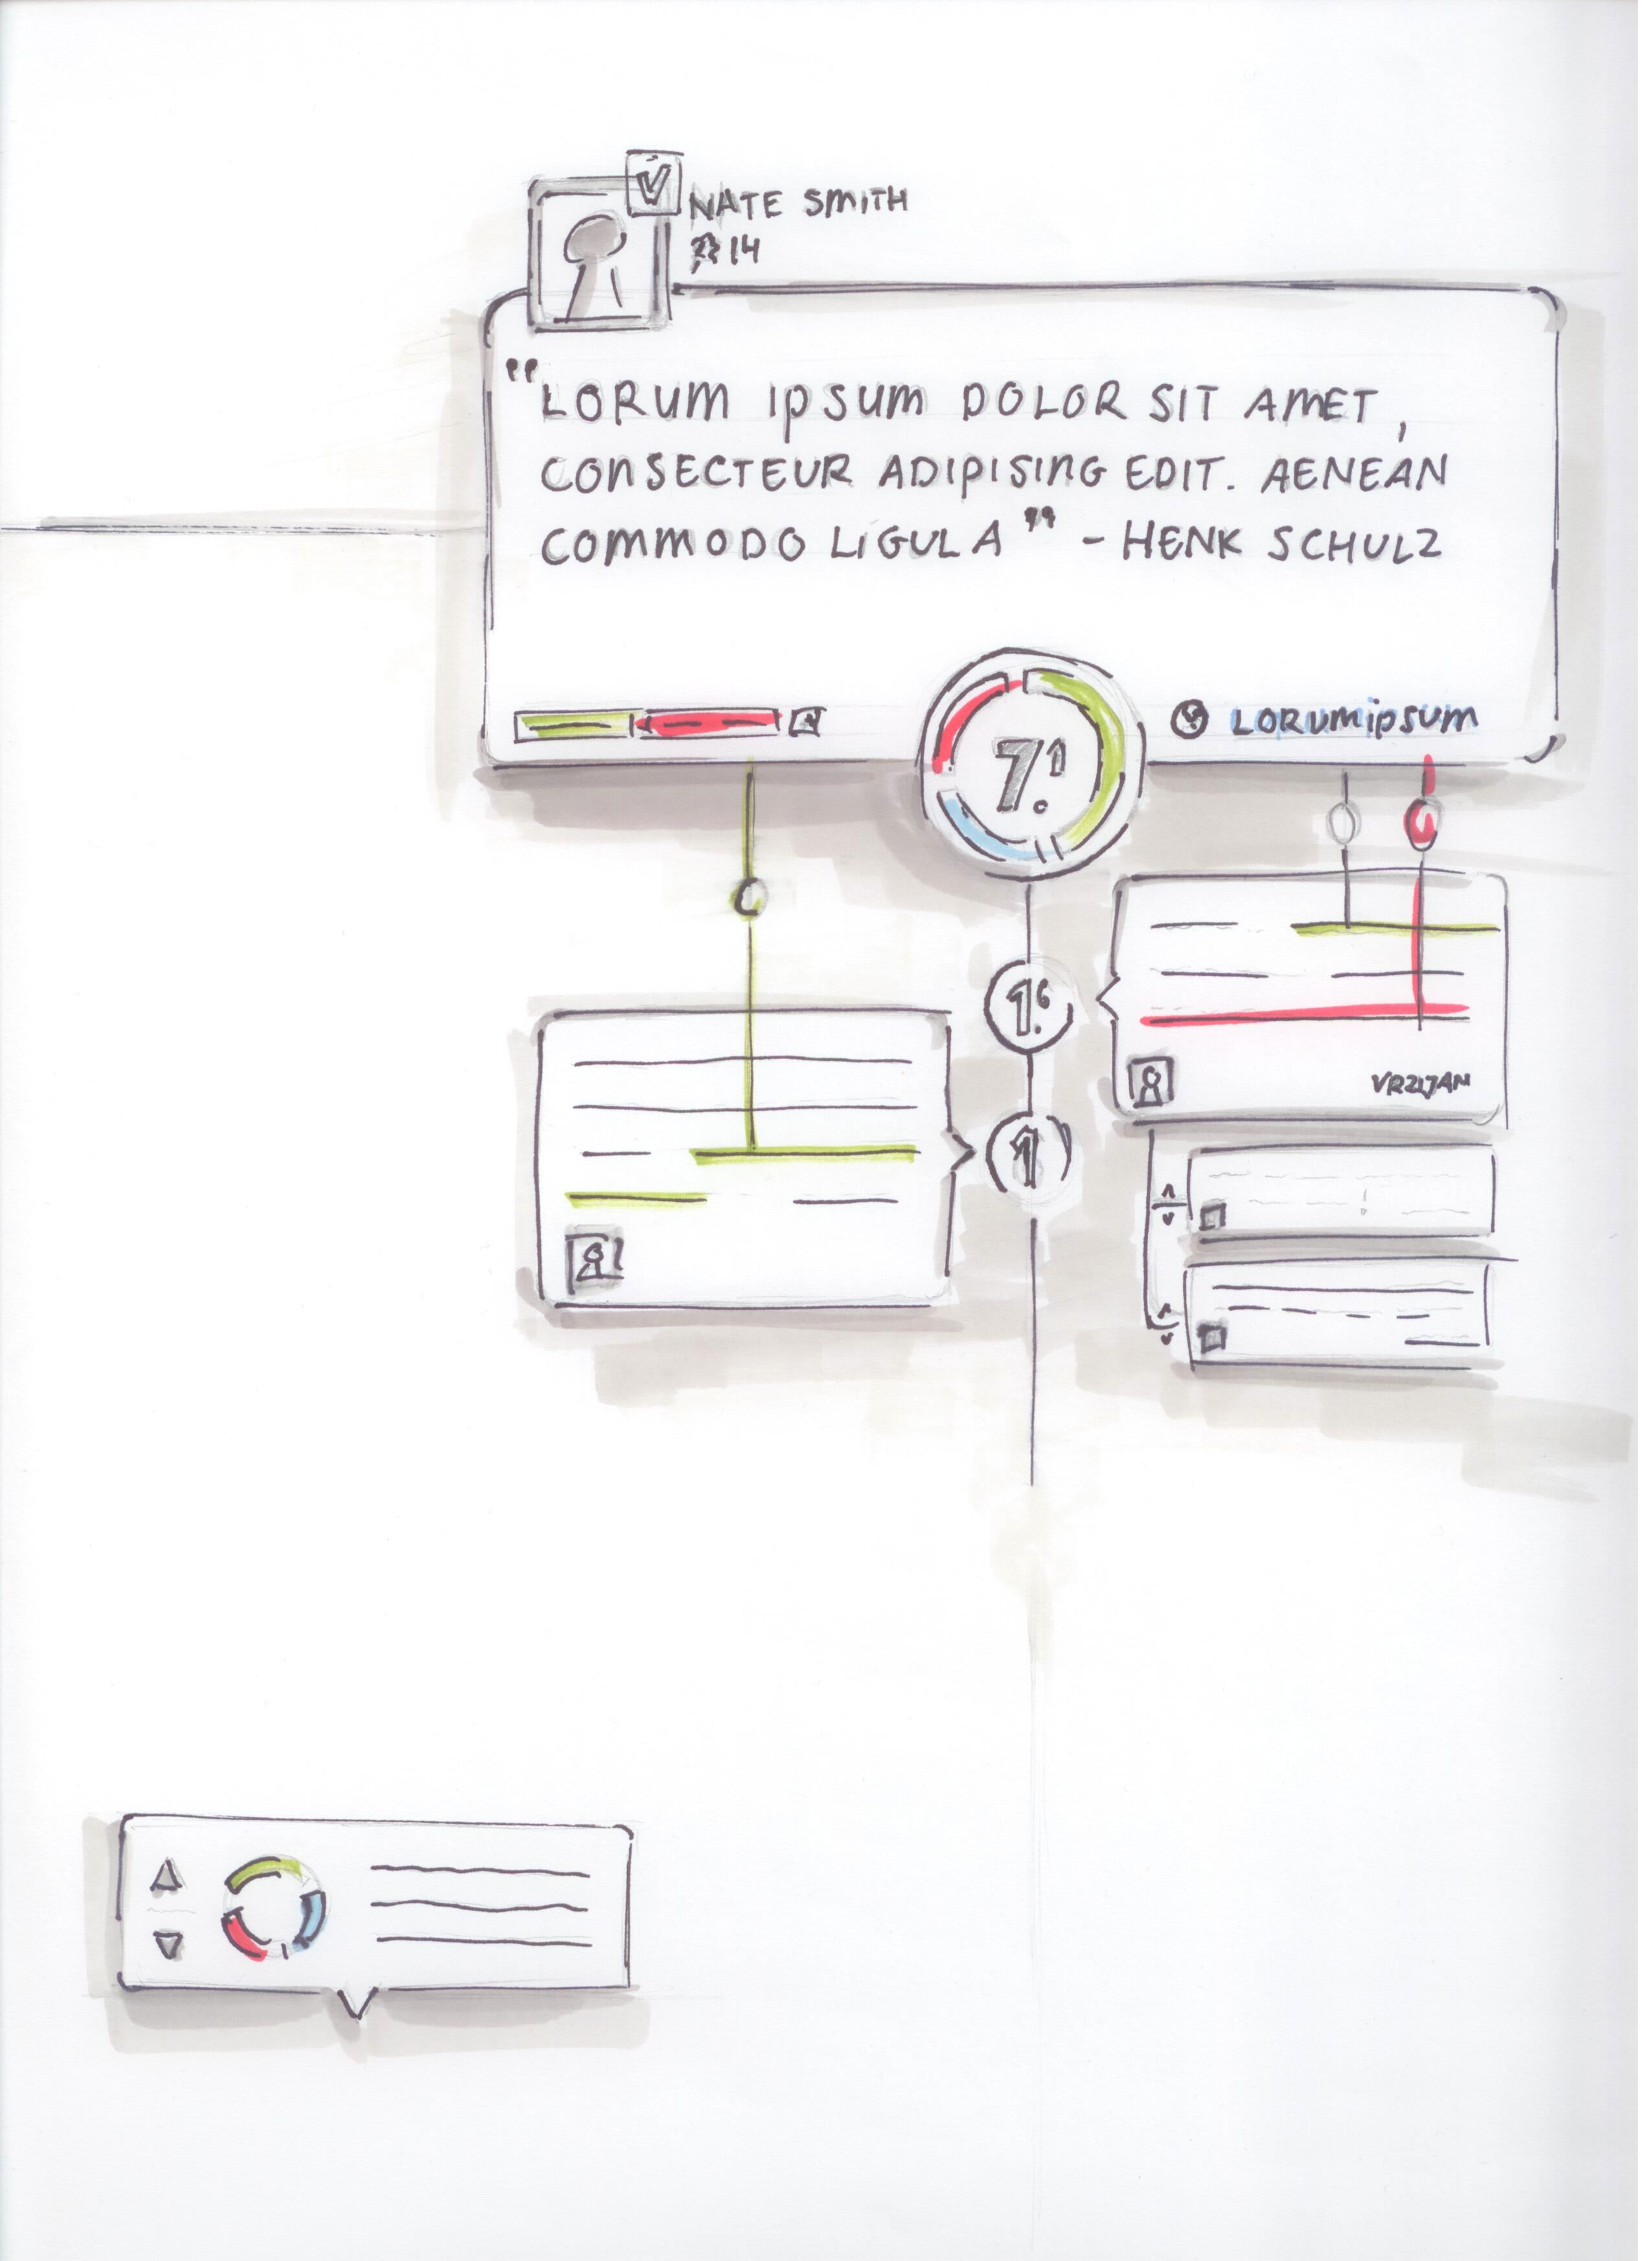 NATE SMITH
14
"LORUM IPSUM DOLOR SIT AMET,
CONSECTEUR ADIPISING EDIT. AENEAN
COMMODO LIGULA" - HENK SCHULZ
LORUMIPSUM
7.1
1.6
1